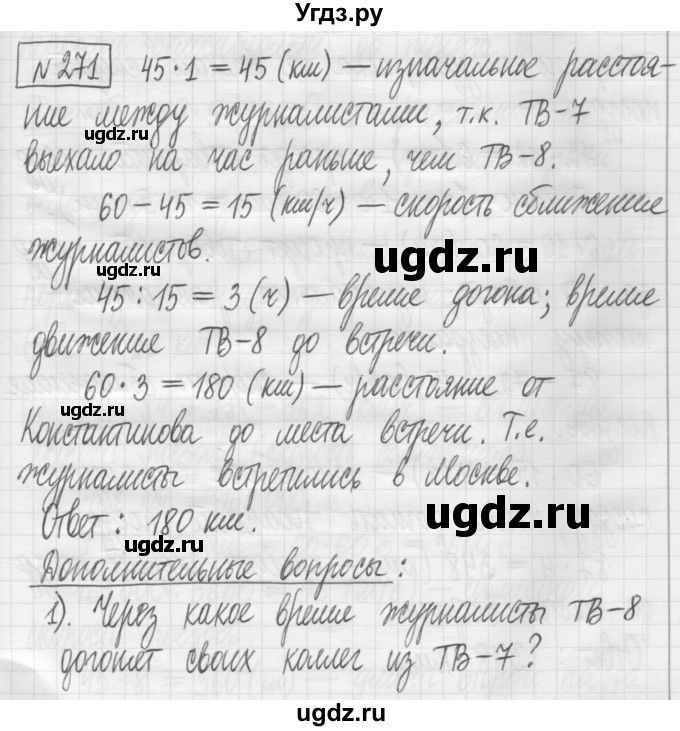 Угдз.ру
№271 45·1 = 45 (км) – изначальное расстоя-
ние между журналистами, т.к. ТВ-7
ugdz.ru
выехало на час раньше, чем ТВ-8.
60 – 45 = 15 (км/ч) – скорость сближения
журналистов.
ugdz.ru
ugdz.ru
45 : 15 = 3 (ч) – время догона; время
движение ТВ-8 до встречи.
60 · 3 = 180 (км) – расстояние от
ugdz.ru
Константинова до места встречи. Т.е.
журналисты встретились в Москве.
ugdz.ru
Ответ: 180 км.
ugdz.ru
Дополнительные вопросы:
1). Через какое время журналисты ТВ-8
ugdz.ru
догонят своих коллег из ТВ-7?
ugdz.ru